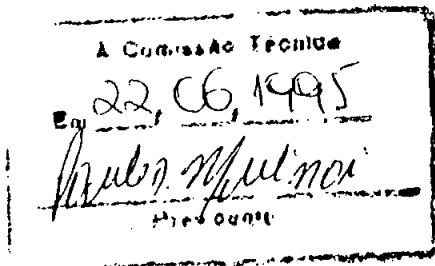 A Comissão Técnica
Em 22, 06, 1995
Presidente